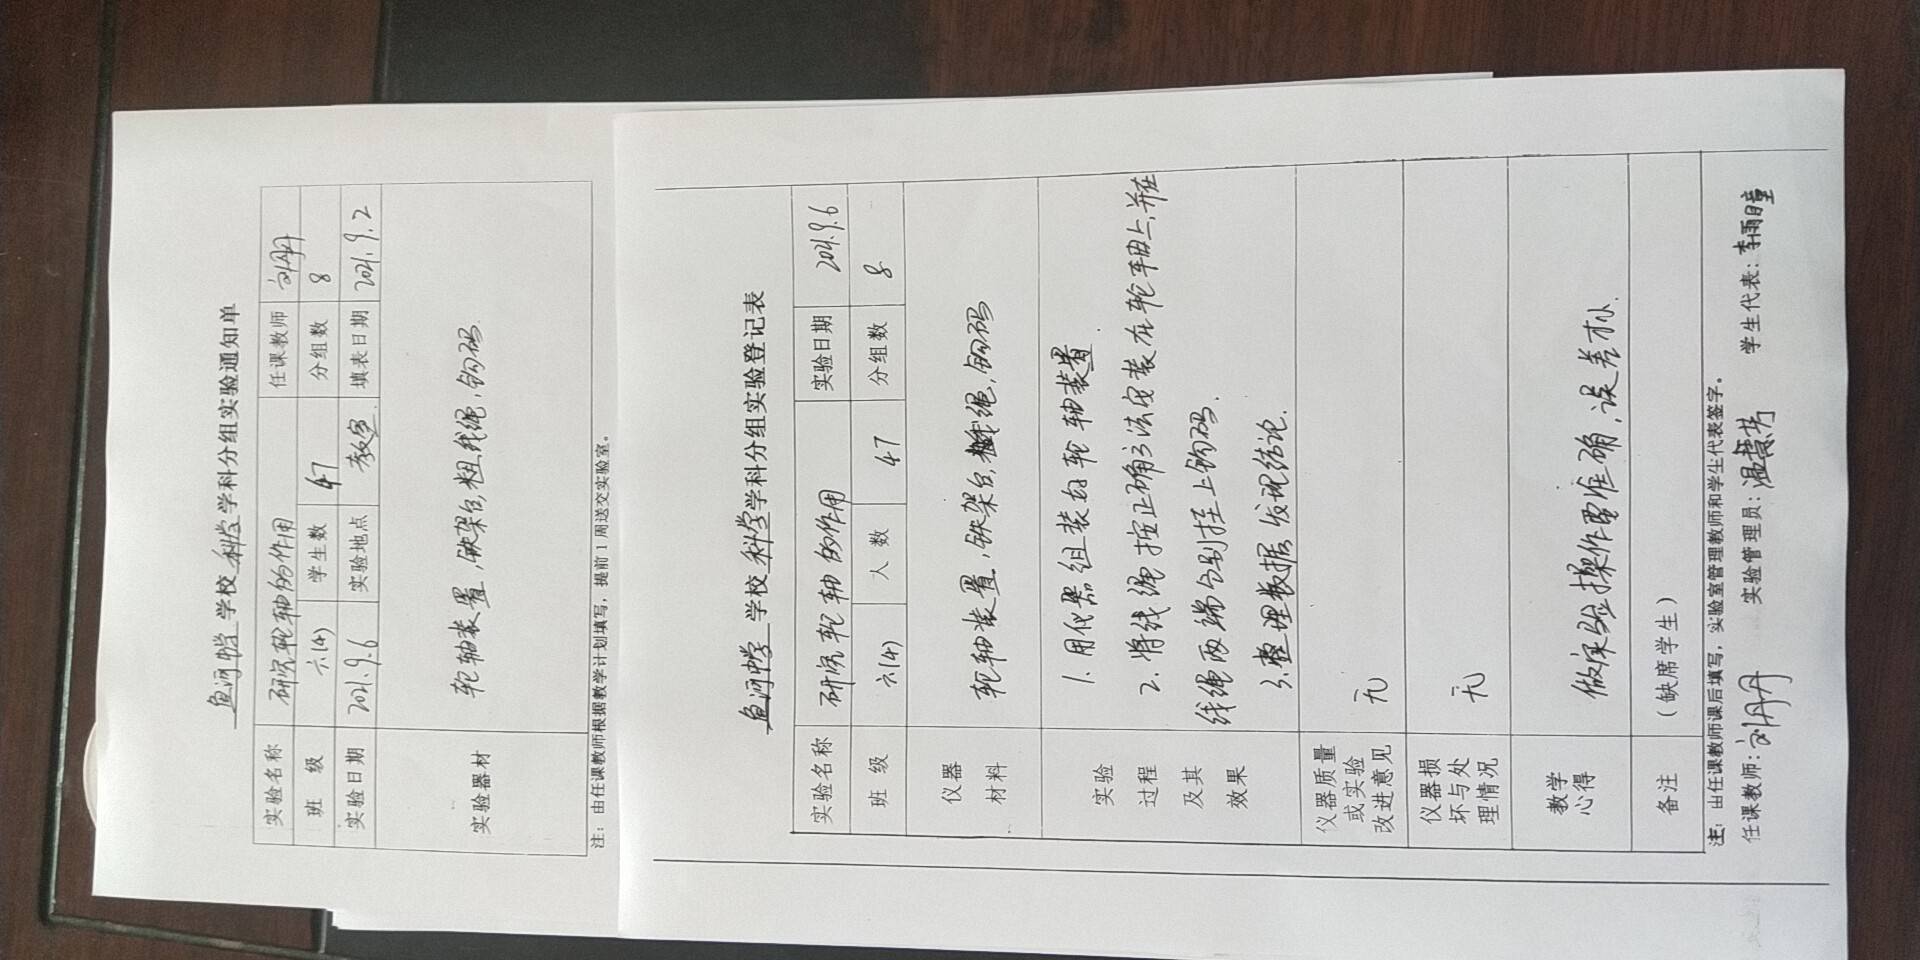 鱼河中学 学校 科学 学科分组实验通知单
实验名称 研究轮轴的作用 任课教师 刘丹丹
班 级 六(4) 学生数 47 分组数 8
实验日期 2021.9.6 实验地点 教室 填表日期 2021.9.2
实验器材 轮轴装置,铁架台,粗线绳,钩码
注:由任课教师根据教学计划填写,提前1周送交实验室。
鱼河中学 学校 科学 学科分组实验登记表
实验名称 研究轮轴的作用 实验日期 2021.9.6
班 级 六(4) 人 数 47 分组数 8
仪器材料 轮轴装置,铁架台,粗线绳,钩码
实验过程及其效果
1.用仪器组装好轮轴装置.
2.将线绳按正确方法安装在轮轴上,并在
线绳两端分别挂上钩码.
3.整理数据,发现结论.
仪器质量或实验改进意见 无
仪器损坏与处理情况 无
教学心得 做实验操作要准确,误差小.
备注 (缺席学生)
注:由任课教师课后填写,实验室管理教师和学生代表签字。
任课教师:刘丹丹 实验管理员:温慧芳 学生代表:李雨瞳